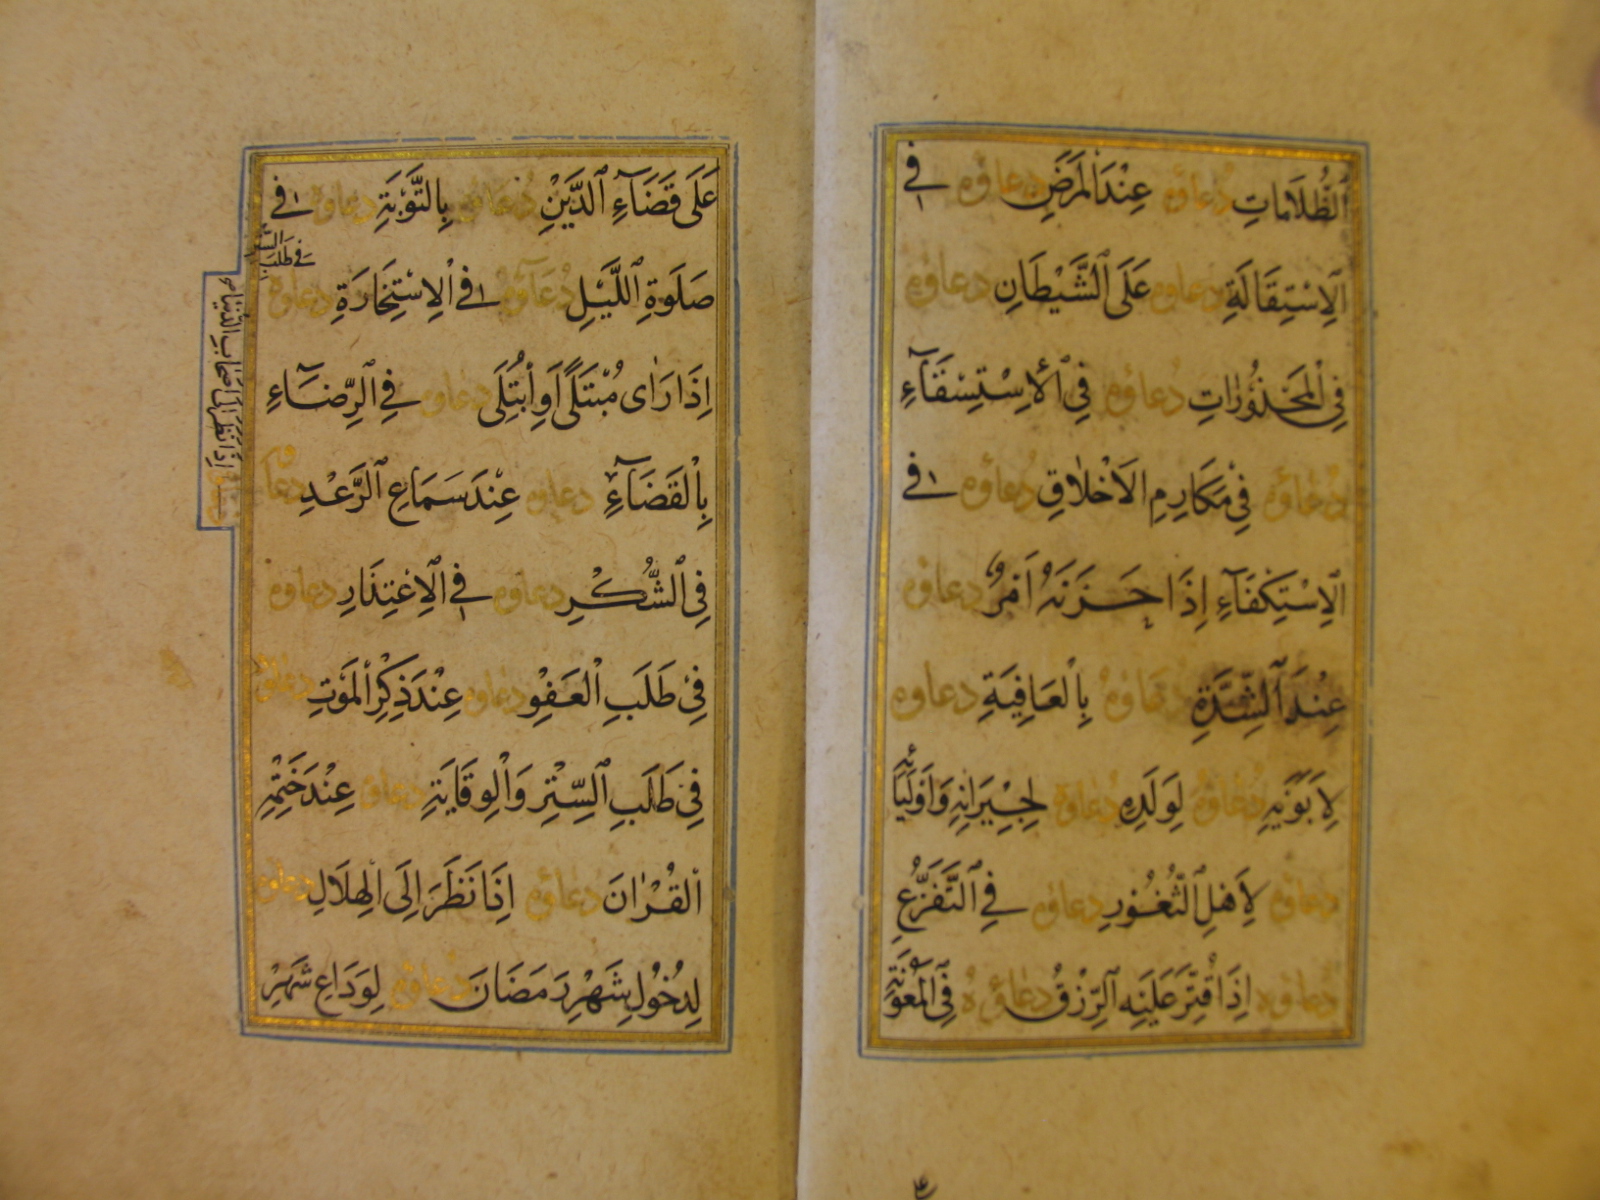 اَلظُّلَامَاتِ دُعَاؤُهُ عِنْدَ الْمَرَضِ دعاؤه في
اَلِاسْتِقَالَةِ دعاوه عَلَى الشَّيْطَانِ دعاوه
فِي الْمَحْذُورَاتِ دُعاؤه فِي الْاِسْتِسْقَاءِ
دُعاؤه فِي مَكَارِمِ الْاَخْلَاقِ دُعاؤه في
اَلِاسْتِكْفَاءِ اِذَا حَزَنَهُ اَمْرٌ دعاوه
عِنْدَ الشِّدَّةِ دُعاؤه بِالْعَافِيَةِ دعاوه
لِاَبَوَيْهِ دُعاؤه لِوَلَدِهِ دُعاؤه لِجِيْرَانِهِ وَاَوْلِيَائِهِ
دعاؤه لِاَهْلِ الثُّغُورِ دعاؤه فِي التَّفَزُّعِ
دُعاؤه اِذَا قُتِّرَ عَلَيْهِ الرِّزْقُ دعاؤه فِي الْمَعُونَةِ
عَلَى قَضَاءِ الدَّيْنِ دُعاؤه بِالتَّوْبَةِ دعاؤه في
صَلَوةِ اللَّيْلِ دُعَاؤُهُ فِي الْاِسْتِخَارَةِ دعاوه
اِذَا رَاى مُبْتَلًى اَوِ ابْتُلِىَ دعاوه فِي الرِّضَاءِ
بِالْقَضَاءِ دعاوه عِنْدَ سَمَاعِ الرَّعْدِ دعاؤه
فِي الشُّكْرِ دعاوه فِي الْاِعْتِذَارِ دعاوه
فِي طَلَبِ الْعَفْوِ دعاوه عِنْدَ ذِكْرِ الْمَوْتِ دعاؤه
فِي طَلَبِ السِّتْرِ وَالْوِقَايَةِ دعاؤه عِنْدَ خَتْمِهِ
اَلْقُرْاٰنَ دعاؤه اِذَا نَظَرَ اِلَى الْهِلَالِ دعاوه
لِدُخُولِ شَهْرِ رَمَضَانَ دعاؤه لِوَدَاعِ شَهْرِ
فِي طَلَبِ السِّتْرِ
اِذَا نَظَرَ اِلَى اَصْحَابِ الدُّنْيَا